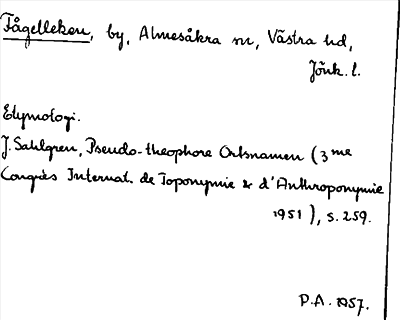 Fågelleken, by, Almesåkra sn, Västra hd,
Jönk. l.
Etymologi.
J. Sahlgren, Pseudo-theophore Ortsnamen (3me
Congrès Internat. de Toponymie & d'Anthroponymie
1951), s. 259.
P.A. 1957.